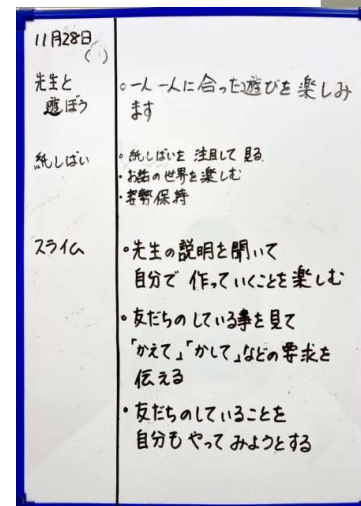 11月28日
( )
先生と
遊ぼう
○一人一人に合った遊びを楽しみ
ます
紙しばい
・紙しばいを注目して見る
・お話の世界を楽しむ
・姿勢保持
スライム
・先生の説明を聞いて
自分で作っていくことを楽しむ
・友だちのしている事を見て
「かえて」「かして」などの要求を
伝える
・友だちのしていることを
自分もやってみようとする